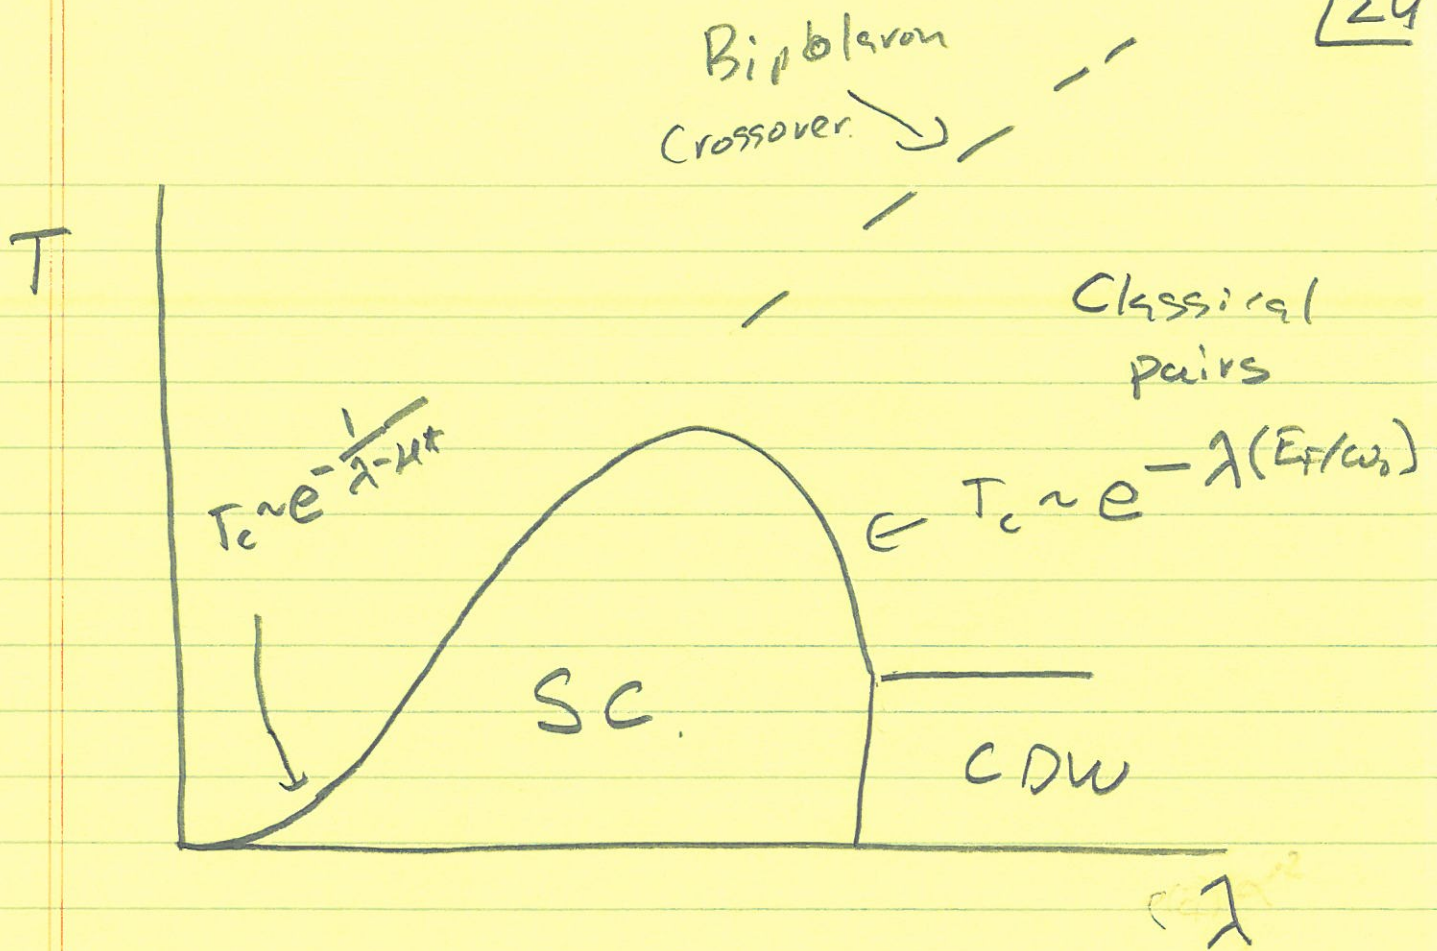 24
Bipolaron
Crossover.
T
Classical
pairs
T_c ~ e^{-\frac{1}{λ-μ*}}
T_c ~ e^{-λ(E_F/ω_0)}
SC.
CDW
λ